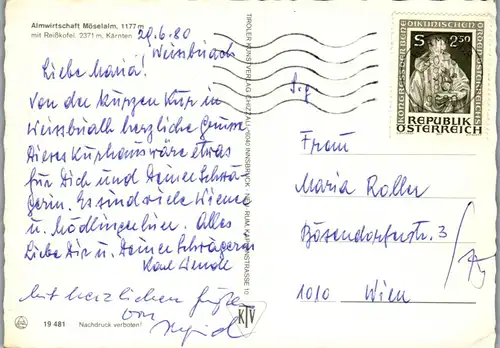 Almwirtschaft Möselalm, 1177 m
mit Reißkofel, 2371 m, Kärnten
29.6.80
Weissbriach
Liebe Maria!
Von der kurzen Kur in
Weissbriach herzliche Grüsse
Dieses Kurhaus wäre etwas
für Dich und Deine Schwä-
gerin. Es sind viele Wiener
u. Mödlinger hier. Alles
Liebe Dir u. Deiner Schwägerin
Karl
Mit herzlichen Grüße
von
19 481 Nachdruck verboten!
TIROLER KUNSTVERLAG CHIZZALI, 6040 INNSBRUCK - NEU RUM, KAPONSSTRASSE 10
KTV
S 2.50
REPUBLIK
ÖSTERREICH
Frau
Maria Roller
Bösendorferstr. 3
1010 Wien